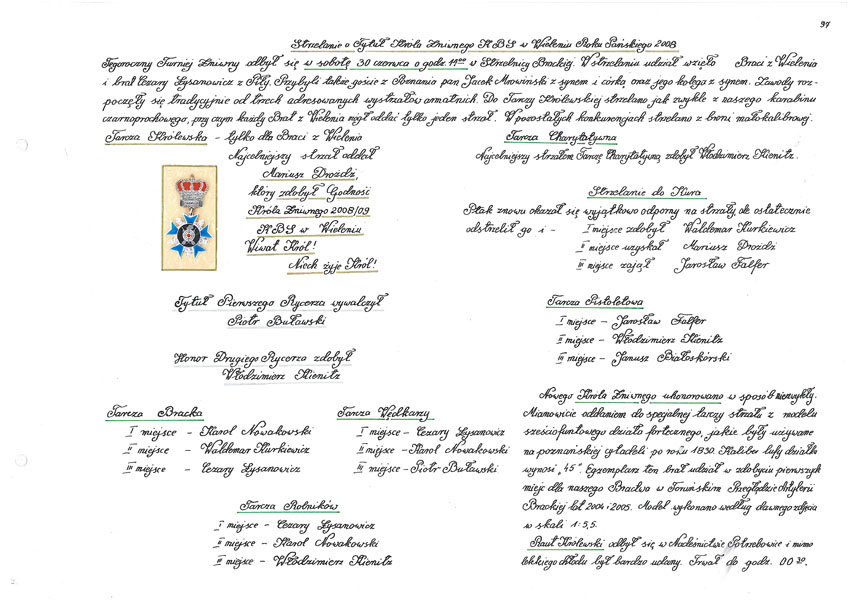 97
Strzelanie o Tytuł Króla Żniwnego KBS w Wieleniu Roku Pańskiego 2008
Tegoroczny Turniej Żniwny odbył się w sobotę 30 czerwca o godz. 11⁰⁰ w Strzelnicy Brackiej. W strzelaniu udział wzięło Braci z Wielenia
i brat Cezary Łysanowicz z Piły. Przybyli także goście z Poznania pan Jacek Mrowiński z synem i córką oraz jego kolega z synem. Zawody roz-
poczęły się tradycyjnie od trzech adresowanych wystrzałów armatnich. Do Tarczy Królewskiej strzelano jak zwykle z naszego karabinu
czarnoprochowego, przy czym każdy Brat z Wielenia mógł oddać tylko jeden strzał. W pozostałych konkurencjach strzelano z broni małokalibrowej.
Tarcza Królewska - tylko dla Braci z Wielenia
Najcelniejszy strzał oddał
Mariusz Drożdż,
który zdobył Godność
Króla Żniwnego 2008/09
KBS w Wieleniu
Wiwat Król!
Niech żyje Król!
Tytuł Pierwszego Rycerza wywalczył
Piotr Buławski
Honor Drugiego Rycerza zdobył
Włodzimierz Kienitz
Tarcza Bracka
I miejsce - Karol Nowakowski
II miejsce - Waldemar Kurkiewicz
III miejsce - Cezary Łysanowicz
Tarcza Wędkarzy
I miejsce - Cezary Łysanowicz
II miejsce - Karol Nowakowski
III miejsce - Piotr Buławski
Tarcza Rolników
I miejsce - Cezary Łysanowicz
II miejsce - Karol Nowakowski
III miejsce - Włodzimierz Kienitz
Tarcza Charytatywna
Najcelniejszy strzałem Tarczę Charytatywną zdobył Włodzimierz Kienitz.
Strzelanie do Kura
Ptak znowu okazał się wyjątkowo odporny na strzały, ale ostatecznie
odstrzelił go i - I miejsce zdobył Waldemar Kurkiewicz
II miejsce uzyskał Mariusz Drożdż
III miejsce zajął Jarosław Falfer
Tarcza Pistoletowa
I miejsce - Jarosław Falfer
II miejsce - Włodzimierz Kienitz
III miejsce - Janusz Białoskórski
Nowego Króla Żniwnego uhonorowano w sposób niezwykły.
Mianowicie oddaniem do specjalnej tarczy strzału z modelu
sześciofuntowego działa fortecznego, jakie były używane
na poznańskiej cytadeli po roku 1830. Kaliber lufy działka
wynosi „45". Egzemplarz ten brał udział w zdobyciu pierwszych
miejsc dla naszego Bractwa w Toruńskim Przeglądzie Artylerii
Brackiej lat 2004 i 2005. Model wykonano według dawnego zdjęcia
w skali 1:5,5.
Raut Królewski odbył się w Nadleśnictwie Potrzebowice i mimo
lekkiego chłodu był bardzo udany. Trwał do godz. 00³⁰.